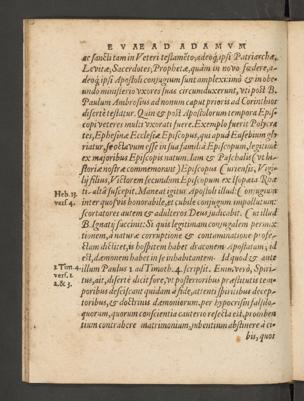 EVAE AD ADAMVM
ac sancti tam in Veteri testamẽto, adeoq́; ipsi Patriarchæ,
Levitæ, Sacerdotes, Prophetæ, quàm in novo fœdere, a-
deoq́; ipsi Apostoli conjugium sunt amplexi: imò & in obe-
undo ministerio vxores suas circumduxerunt, vti post B.
Paulum Ambrosius ad nonum caput prioris ad Corinthios
disertè testatur. Quin & post Apostolorum tempora Epis-
copi veteres multi vxorati fuere. Exemplo fuerit Polycra-
tes, Ephesinæ Ecclesiæ Episcopus, qui apud Eusebium glo-
riatur, se octavum esse in sua familiâ Episcopum, legitimè
ex majoribus Episcopis natum. Iam & Paschalis (vt hi-
storiæ nostræ commemorant) Episcopus Curiensis, Vigi-
lij filius, Victorem secundum Episcopum ex
altâ suscepit. Maneat igitur Apostoli illud: Conjugium
inter quosvis honorabile, et cubile conjugum impollutum:
scortatores autem & adulteros Deus judicabit. Cui illud
B. Ignatij succinit: Si quis legitimam conjugalem permix-
tionem, à naturæ corruptione & contaminatione profe-
ctam dictitet, is hospitem habet draconem Apostatam, id
est, dæmonem habet in se inhabitantem. Id quod & ante
illum Paulus 1. ad Timoth. 4. scripsit. Enimverò, Spiri-
tus, ait, disertè dicit fore, vt posterioribus præstitutis tem-
poribus desciscant quidam à fide, attenti spiritibus decep-
toribus, & doctrinis dæmoniorum, per hypocrisin falsilo-
quorum, quorum conscientia cauterio resecta est, prohiben-
tium contrahere matrimonium, jubentium abstinere à ci-
bis, quos
Heb. 13.
vers. 4.
1. Tim. 4.
vers. 1.
2. & 3.